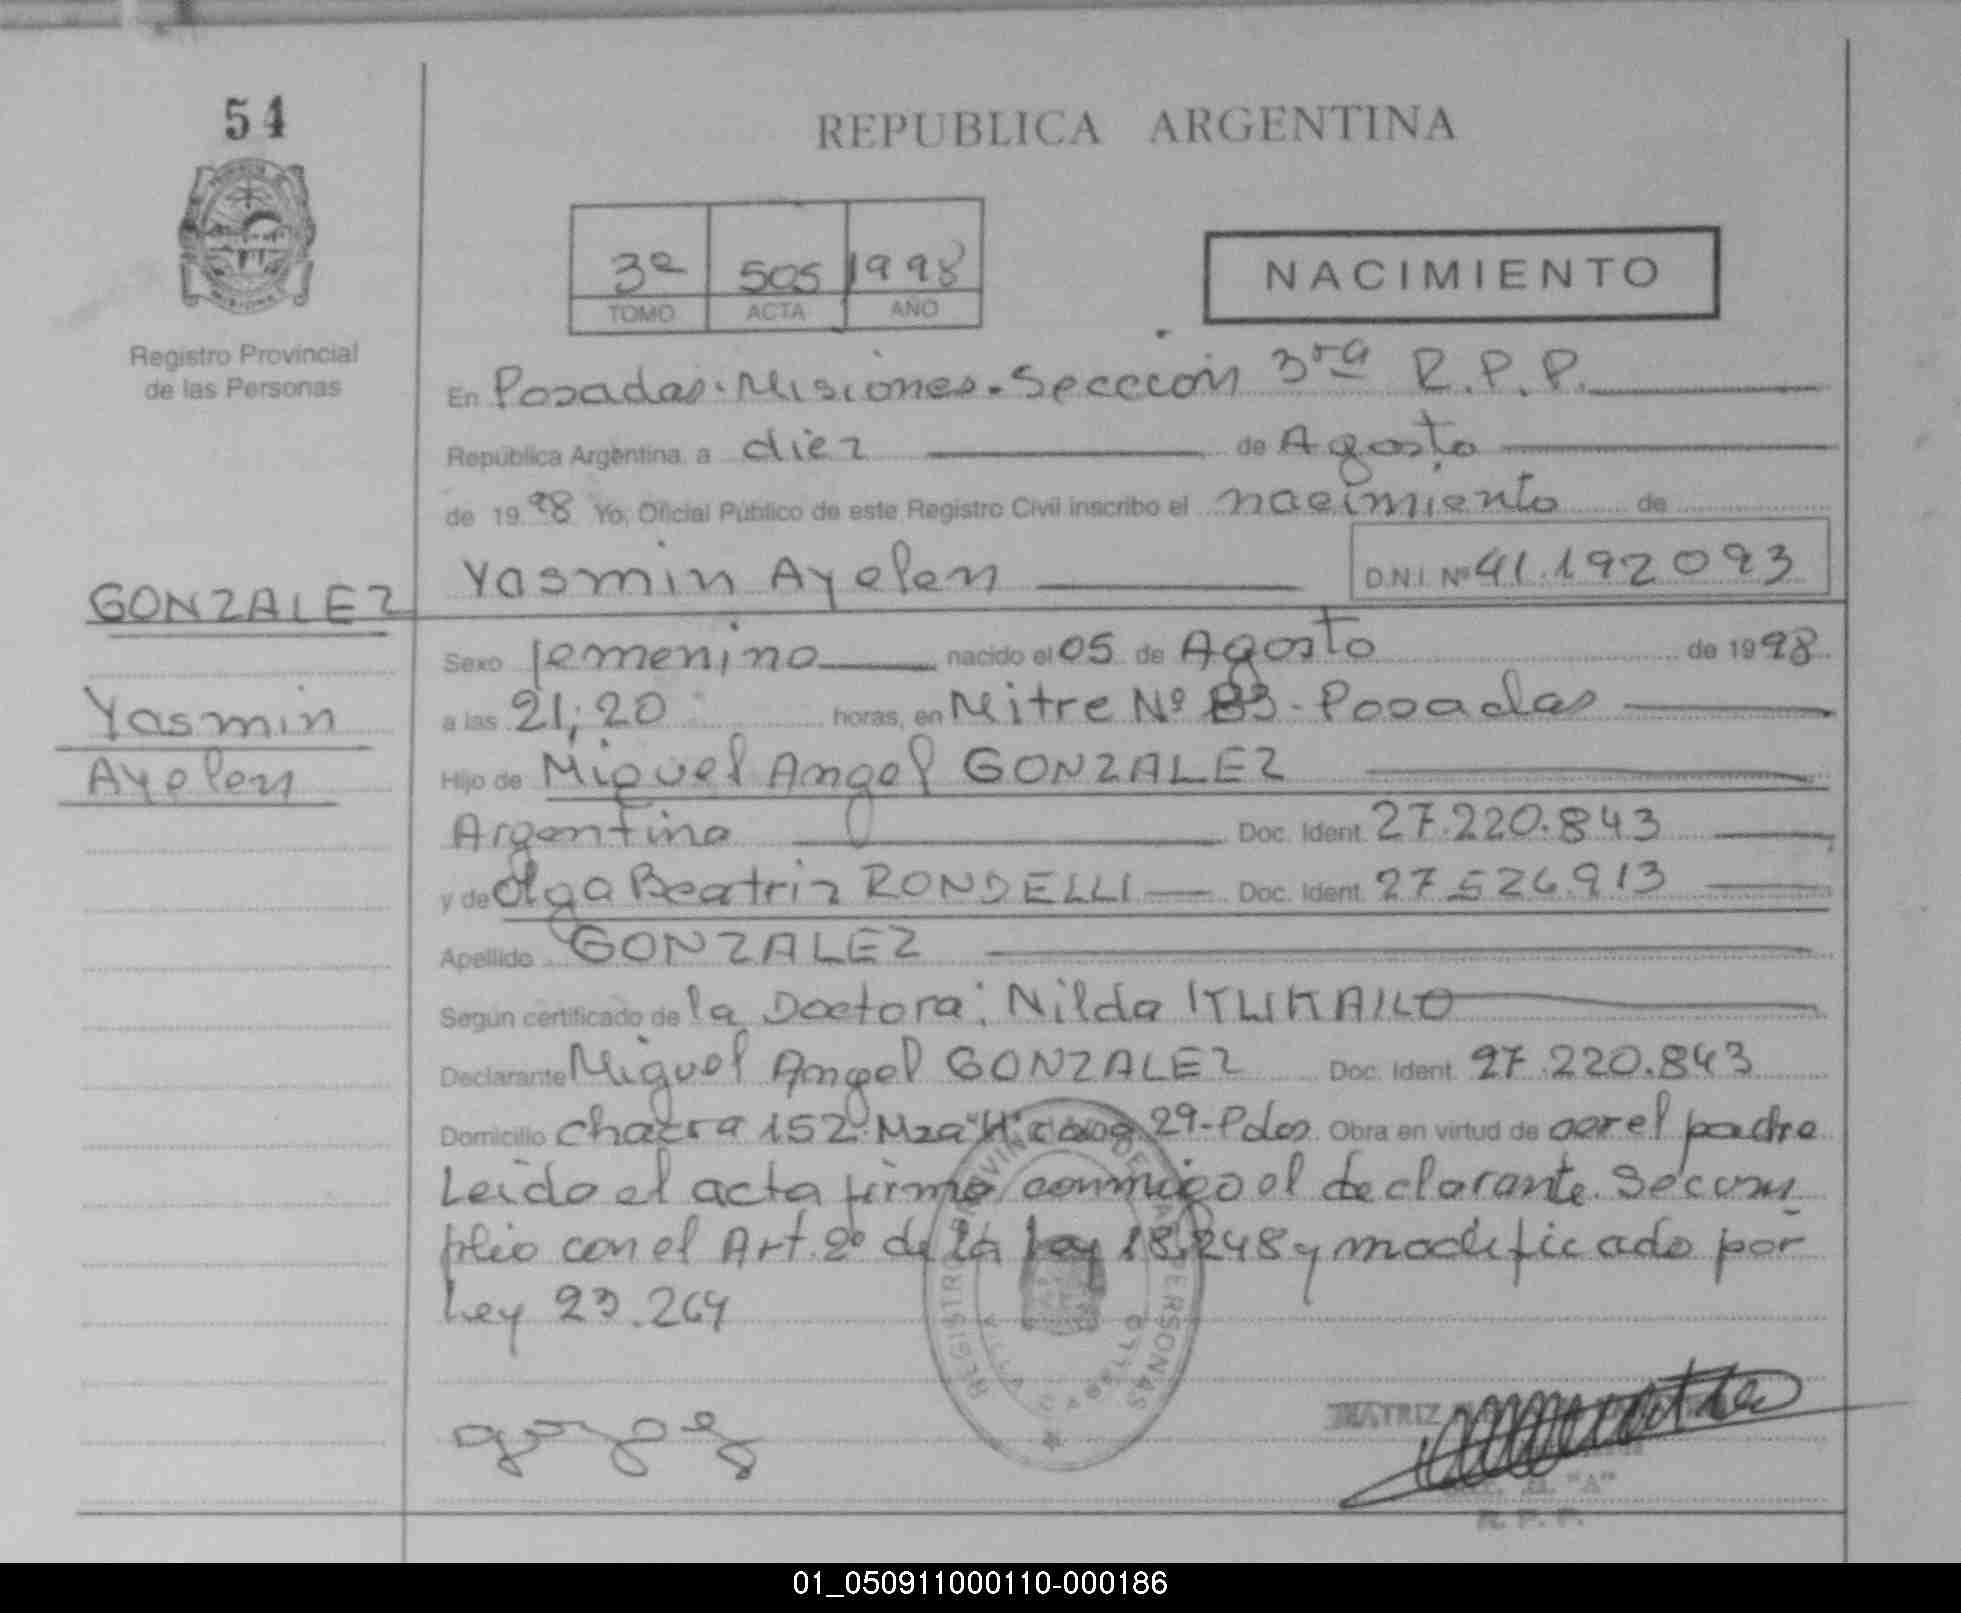 54
REPUBLICA ARGENTINA
3º 505 1998
TOMO ACTA AÑO
NACIMIENTO
Registro Provincial
de las Personas
En Posadas. Misiones. Seccción 3ra R.P.P.
República Argentina, a diez de Agosto
de 19 98 Yo, Oficial Público de este Registro Civil inscribo el nacimiento de
Yasmin Ayelen D.N.I. Nº 41.192093
GONZALEZ
Yasmin
Ayelen
Sexo femenino nacido el 05 de Agosto de 19 98
a las 21,20 horas, en Mitre Nº 83 - Posadas
Hijo de Miguel Angel GONZALEZ
Argentina Doc. Ident. 27.220.843
y de Olga Beatriz RONDELLI Doc. Ident. 27.526.913
Apellido GONZALEZ
Según certificado de la Doctora: Nilda
Declarante Miguel Angel GONZALEZ Doc. Ident. 27.220.843
Domicilio Chacra 152 Mza "H" casa 29 - Pdas Obra en virtud de ser el padre
Leido el acta firma conmigo el declarante. Se cum
plio con el Art. 2º de la Ley 18.248 y modificado por
Ley 23.264
REGISTRO PROVINCIAL DE LAS PERSONAS
R. P. P.
01_050911000110-000186